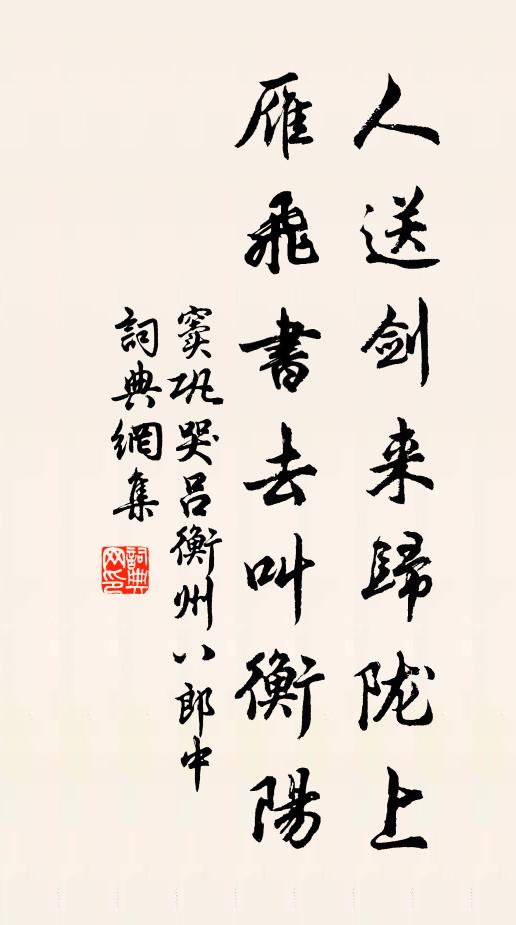 人送剑来歸陇上
雁飛書去叫衡陽
窦巩哭吕衡州八郎中
詞典網集
詞典网印